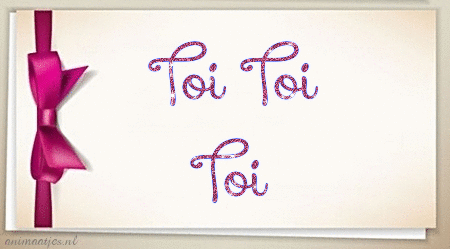 Toi Toi
Toi
animaatjes.nl